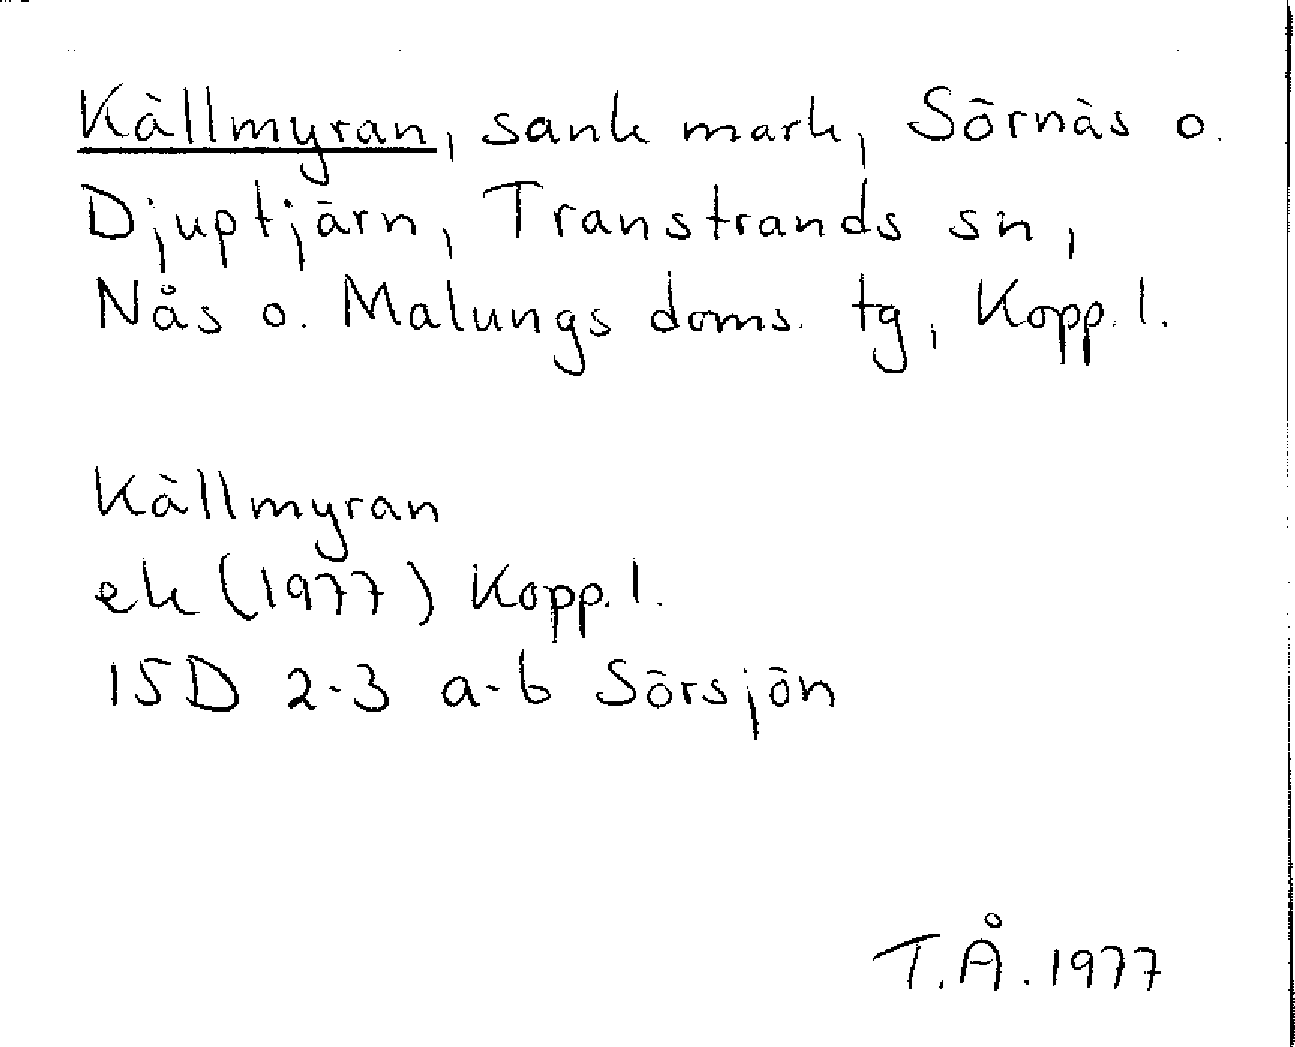 Källmyran, sank mark, Sörnäs o.
Djuptjärn, Transtrands sn,
Nås o. Malungs doms. tg, Kopp. l.
Källmyran
ek (1977) Kopp. l.
15D 2-3 a-b Sörsjön
T.Å. 1977